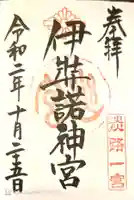 奉拝
淡路一宮
伊弉諾神宮
令和二年十月二五日